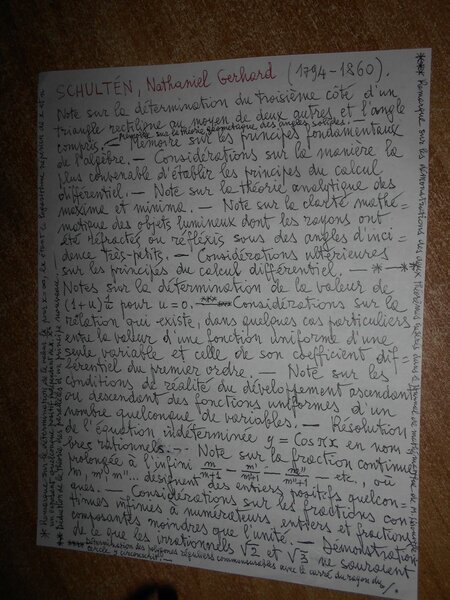 SCHULTÉN, Nathaniel Gerhard (1794-1860).
Note sur la détermination du troisième côté d'un
triangle rectiligne au moyen de deux autres et l'angle
compris. Mémoire sur la théorie géométrique des angles solides. — Mémoire sur les principes fondamentaux
de l'algèbre. — Considérations sur la manière la
plus convenable d'établir les principes du calcul
différentiel. — Note sur la théorie analytique des
maxima et minima. — Note sur la clarté mathé=
matique des objets lumineux dont les rayons ont
été réfractés ou réfléxis sous des angles d'inci=
dence très-petits. — Considérations ultérieures
sur les principes du calcul différentiel. — * — * —
Notes sur la détermination de la valeur de
(1+u)^1/u pour u=0. — *** — Considérations sur la
rélation qui existe, dans quelques cas particuliers
entre la valeur d'une fonction uniforme d'une
seule variable et celle de son coefficient dif=
férentiel du premier ordre. — Note sur les
conditions de réalité du développement ascendant
ou descendant des fonctions uniformes d'un
nombre quelconque de variables. — Résolution
de l'équation indéterminée y = cos πx en nom=
bres rationnels. — Note sur la fraction continue
prolongée à l'infini m/m+1 − m'/m'+1 − m''/m''+1 − etc., où
m, m', m''... désignent des entiers positifs quelcon=
ques. — Considérations sur les fractions con=
tinues infinies à numérateurs entiers et fractions
composantes moindres que l'unité. — Démonstration
de ce que les irrationnelles √2 et √3 ne sauraient
** Détermination des polygones réguliers commensurables avec le carré du rayon du
cercle y circonscrit. — ./.